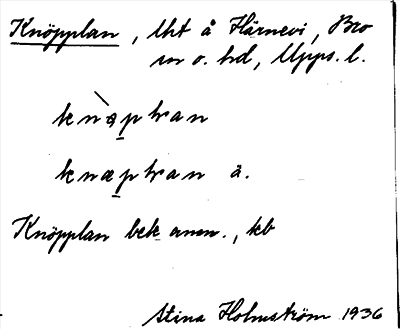 Knöpplan, lht å Härnevi, Bro
sn o. hd, Upps. l.
knæpḷan
knæpḷan a.
Knöpplan bek. anm., kb
Stina Holmström 1936